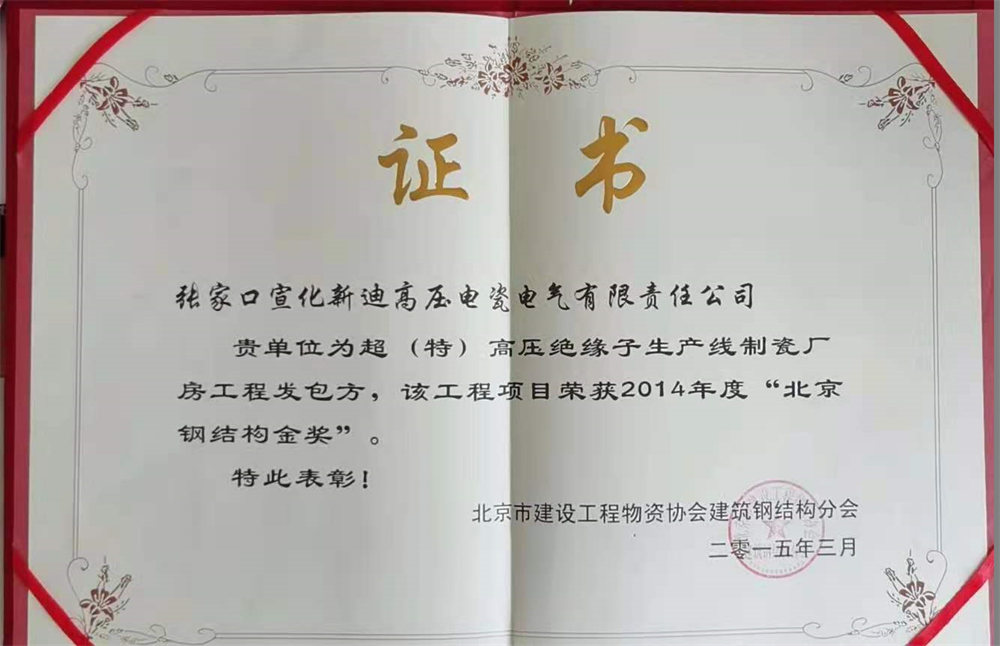 证书
张家口宣化新迪高压电瓷电气有限责任公司
贵单位为超（特）高压绝缘子生产线制瓷厂
房工程发包方，该工程项目荣获2014年度“北京
钢结构金奖”。
特此表彰！
北京市建设工程物资协会建筑钢结构分会
二零一五年三月